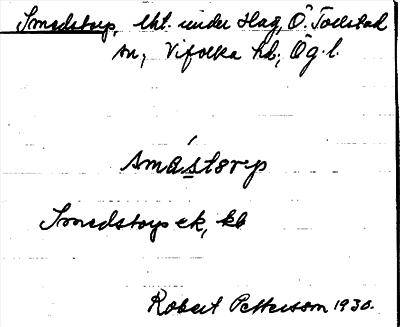 Smedstorp, lht. under Hag, Ö. Tollstad
sn, Vifolka hd, Ög. l.
smástorp
Smedstorp ek, kb
Robert Pettersson 1930.